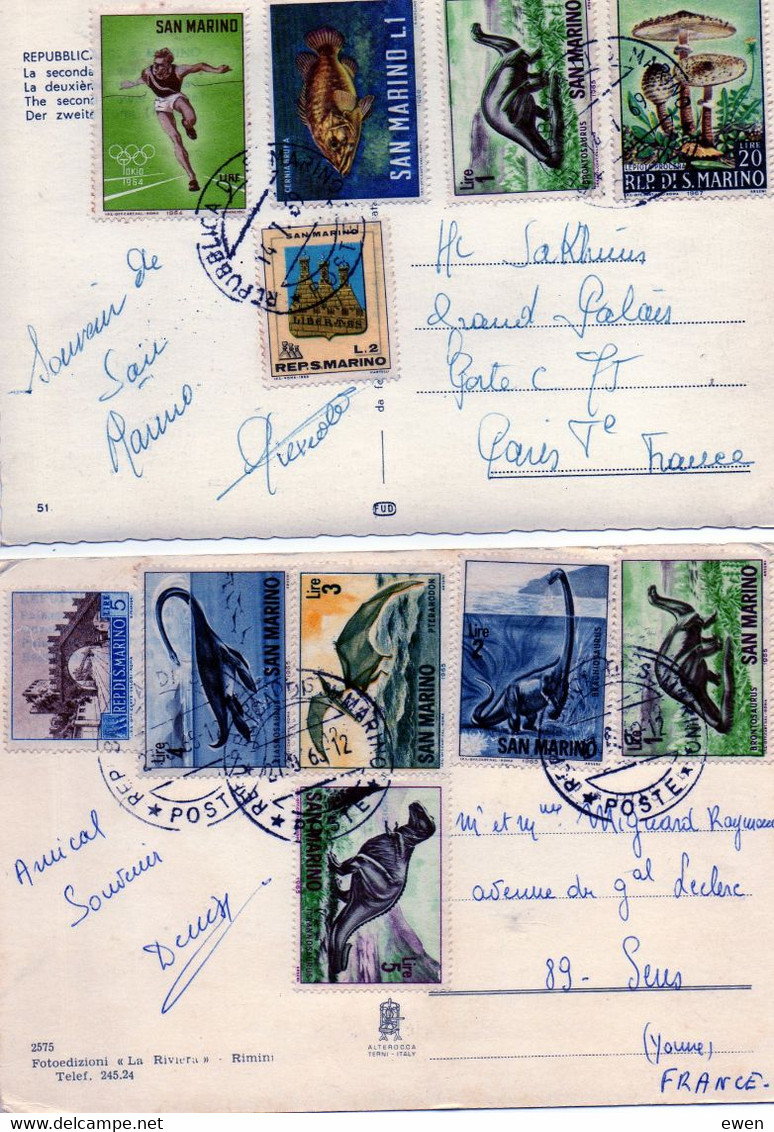 REPUBBLIC
La seconda
La deuxièm
The second
Der zweite
SAN MARINO
TOKIO
1964
LIRE
1964
CERNIA BRUNA
SAN MARINO L.1
1
Lire
BRONTOSAURUS
SAN MARINO
1965
LEPIOTA PROCERA
LIRE
20
REP. DI S. MARINO
1967
REPUBBLICA DI S.
SAN MARINO
LIBERTAS
L.2
REP. S. MARINO
Souvenir de
San
Marino
Grand Palais
Porte C 75
Paris
France
da
51
FUD
5
LIRE
REP. DI S. MARINO
Lire 4
ELASMOSAURUS
SAN MARINO
1965
Lire 3
PTERANODON
1965
SAN MARINO
Lire
2
BRACHIOSAURUS
SAN MARINO
1965
Lire
1
BRONTOSAURUS
SAN MARINO
1965
POSTE
POSTE
POSTE
SAN MARINO
1965
Lire
5
Amical
Souvenir
Denise
Mr et Mme Mignard Raymond
avenue du gal Leclerc
89 - Sens
(Yonne)
FRANCE -
2575
Fotoedizioni « La Riviera » - Rimini
Telef. 245.24
ALTEROCCA
TERNI - ITALY
ewen